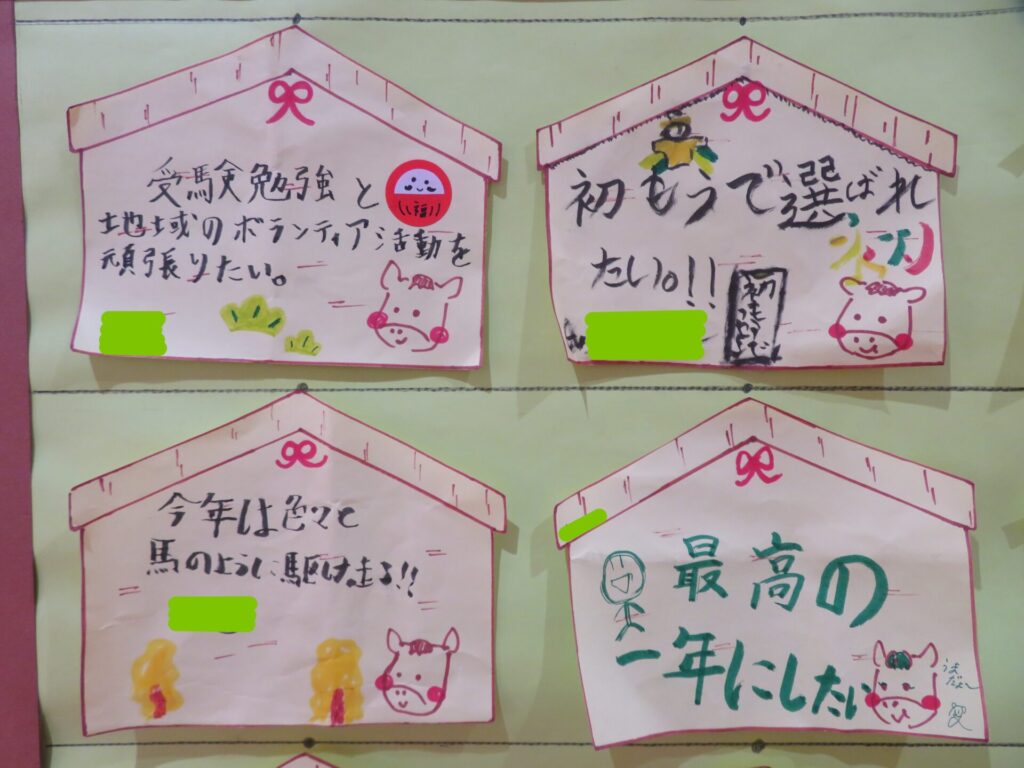 受験勉強と
地域のボランティア活動を
頑張りたい。
福
初もうで選ばれ
たい。!!
初もうで
今年は色々と
馬のように駆け走る!!
最高の
一年にしたい
うま
だよん